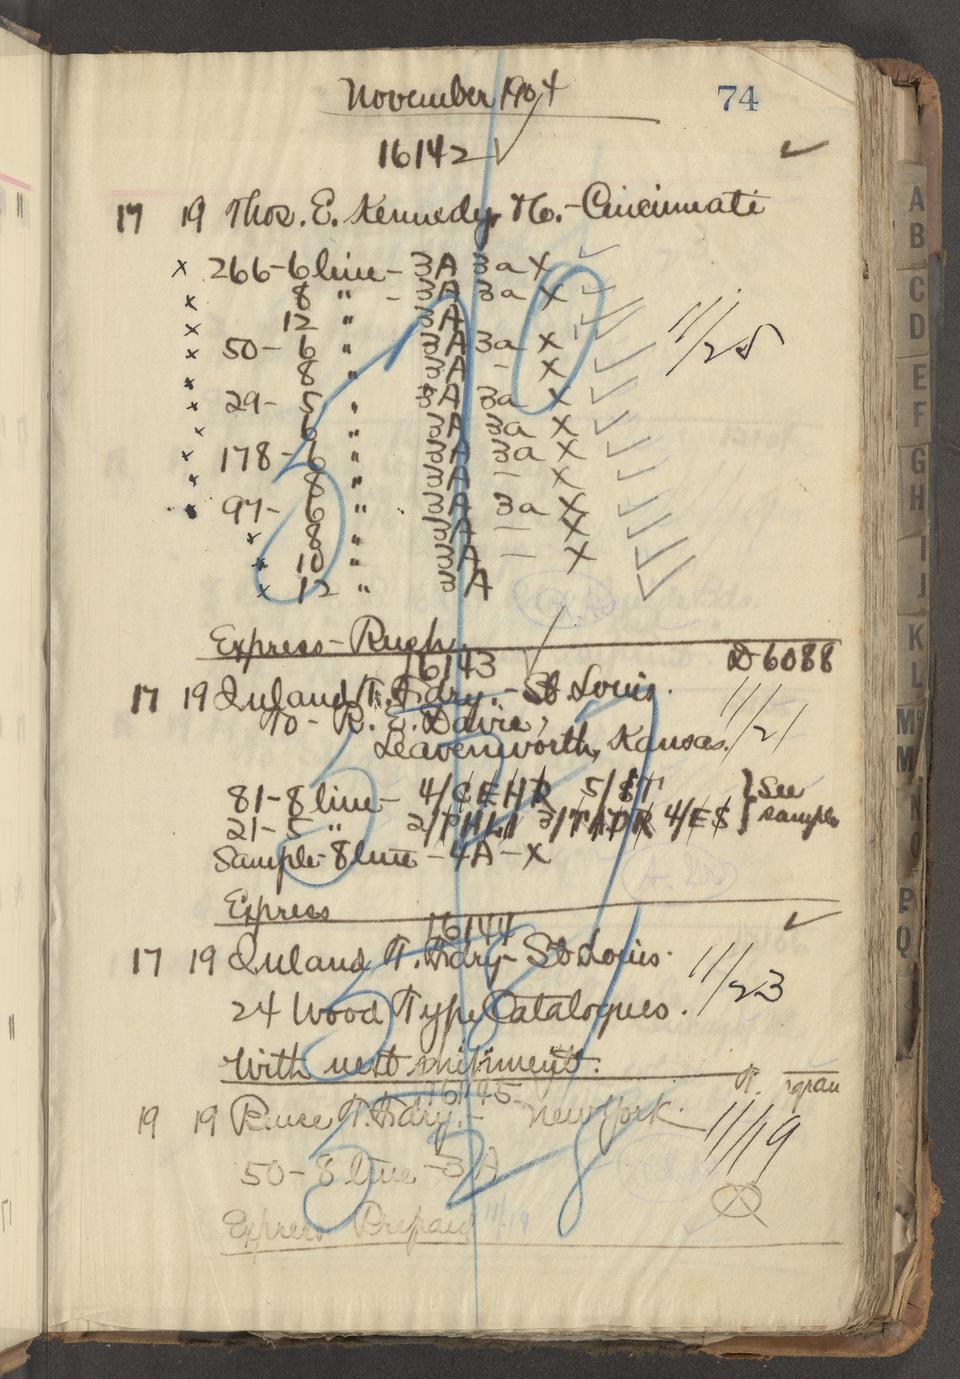 November 1904 74
16142
17 19 Thos. E. Kennedy, Co. - Cincinnati
x 266 - 6 line - 3A 3a X
x 8 " - 3A 3a X
x 12 " 3A
x 50 - 6 " 3A 3a X
x 8 " 3A - X
x 29 - 5 " 3A 3a X
x 6 " 3A 3a X
x 178 - 6 " 3A 3a X
x 8 " 3A - X
x 97 - 6 " 3A 3a X
x 8 " 3A - X
x 10 " 3A - X
x 12 " 3A
11/25
Express - Rush
16143 D 6088
17 19 Inland T. Fdry. - St Louis.
To - R. E. Davis,
Leavenworth, Kansas. 11/21
81 - 8 line - 4/CEHR 5/8T } See
21 - 5 " 4/ES } sample
Sample 8 line - 4A - X
Express
16144
17 19 Inland T. Fdry - St Louis.
24 Wood Type Catalogues. 11/23
With next shipment.
16145
19 19 Bruce T. Fdry. - New York. 11/19
50 - 8 line - 3A
Express Prepaid 11/19
A
B
C
D
E
F
G
H
I
J
K
L
M
M
N
O
P
Q